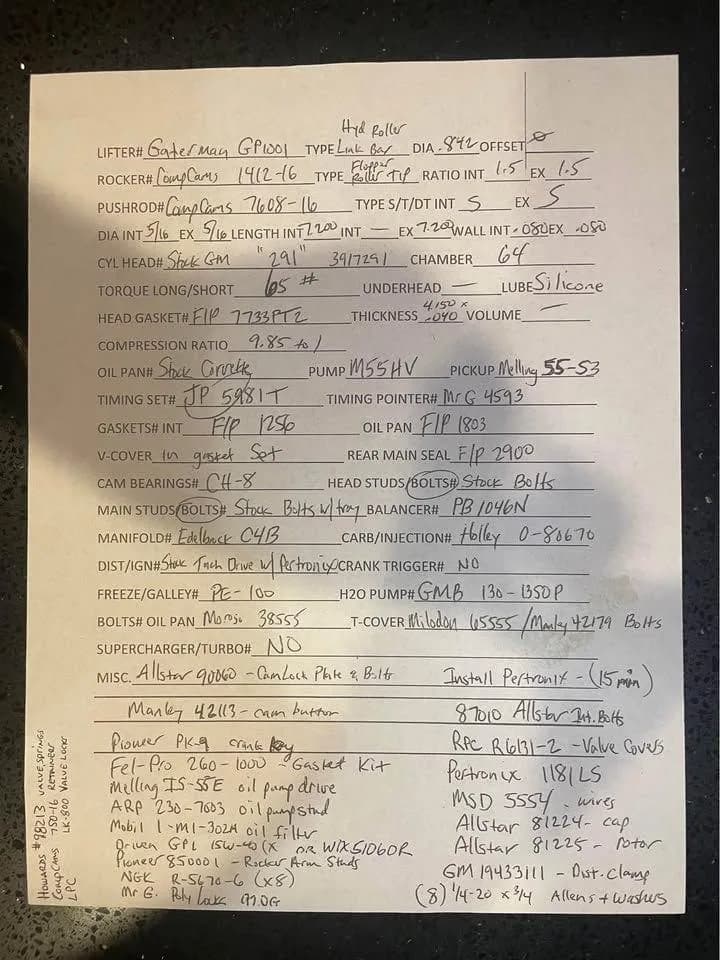 Hyd Roller
LIFTER# Gaterman GP1001 TYPE Link Bar DIA .842 OFFSET Ø
ROCKER# CompCams 1412-16 TYPE Flopper Roller Tip RATIO INT 1.5 EX 1.5
PUSHROD# CompCams 7608-16 TYPE S/T/DT INT S EX S
DIA INT 5/16 EX 5/16 LENGTH INT 7.200 INT — EX 7.200 WALL INT .080 EX .080
CYL HEAD# Stock GM "291" 3917291 CHAMBER 64
TORQUE LONG/SHORT 65 # UNDERHEAD — LUBE Silicone
HEAD GASKET# F/P 7733PT2 THICKNESS 4.150 x .040 VOLUME —
COMPRESSION RATIO 9.85 to 1
OIL PAN# Stock Corvette PUMP M55HV PICKUP Melling 55-S3
TIMING SET# JP 5981T TIMING POINTER# Mr G 4593
GASKETS# INT F/P 1256 OIL PAN F/P 1803
V-COVER in gasket Set REAR MAIN SEAL F/P 2900
CAM BEARINGS# CH-8 HEAD STUDS/BOLTS# Stock Bolts
MAIN STUDS/BOLTS# Stock Bolts w/ tray BALANCER# PB1046N
MANIFOLD# Edelbrock C4B CARB/INJECTION# Holley 0-80670
DIST/IGN# Stock Tach Drive w/ Pertronix CRANK TRIGGER# NO
FREEZE/GALLEY# PE-100 H2O PUMP# GMB 130-1350P
BOLTS# OIL PAN Moroso 38555 T-COVER Milodon 65555 / Manley 42179 Bolts
SUPERCHARGER/TURBO# NO
MISC. Allstar 90060 - Cam Lock Plate & Bolts Install Pertronix - (15 min)
Manley 42113 - cam button 87010 Allstar Int. Bolts
Pioneer PK-9 crank key RPC R6131-2 - Valve Covers
Fel-Pro 260-1000 - Gasket Kit Pertronix 1181LS
Melling IS-55E oil pump drive MSD 5554 - wires
ARP 230-7003 oil pump stud Allstar 81224 - cap
Mobil 1 - M1-302A oil filter Allstar 81225 - rotor
Driven GP1 15W-40 (x OR WIX 51060R
Pioneer 850001 - Rocker Arm Studs GM 19433111 - Dist. clamp
NGK R-5670-6 (x8) (8) 1/4-20 x 3/4 Allens + Washers
Mr G. Poly Locks
HOWARDS #98213 VALVE SPRINGS
COMPCAMS 750-16 RETAINER
LPC LK-800 VALVE LOCKS